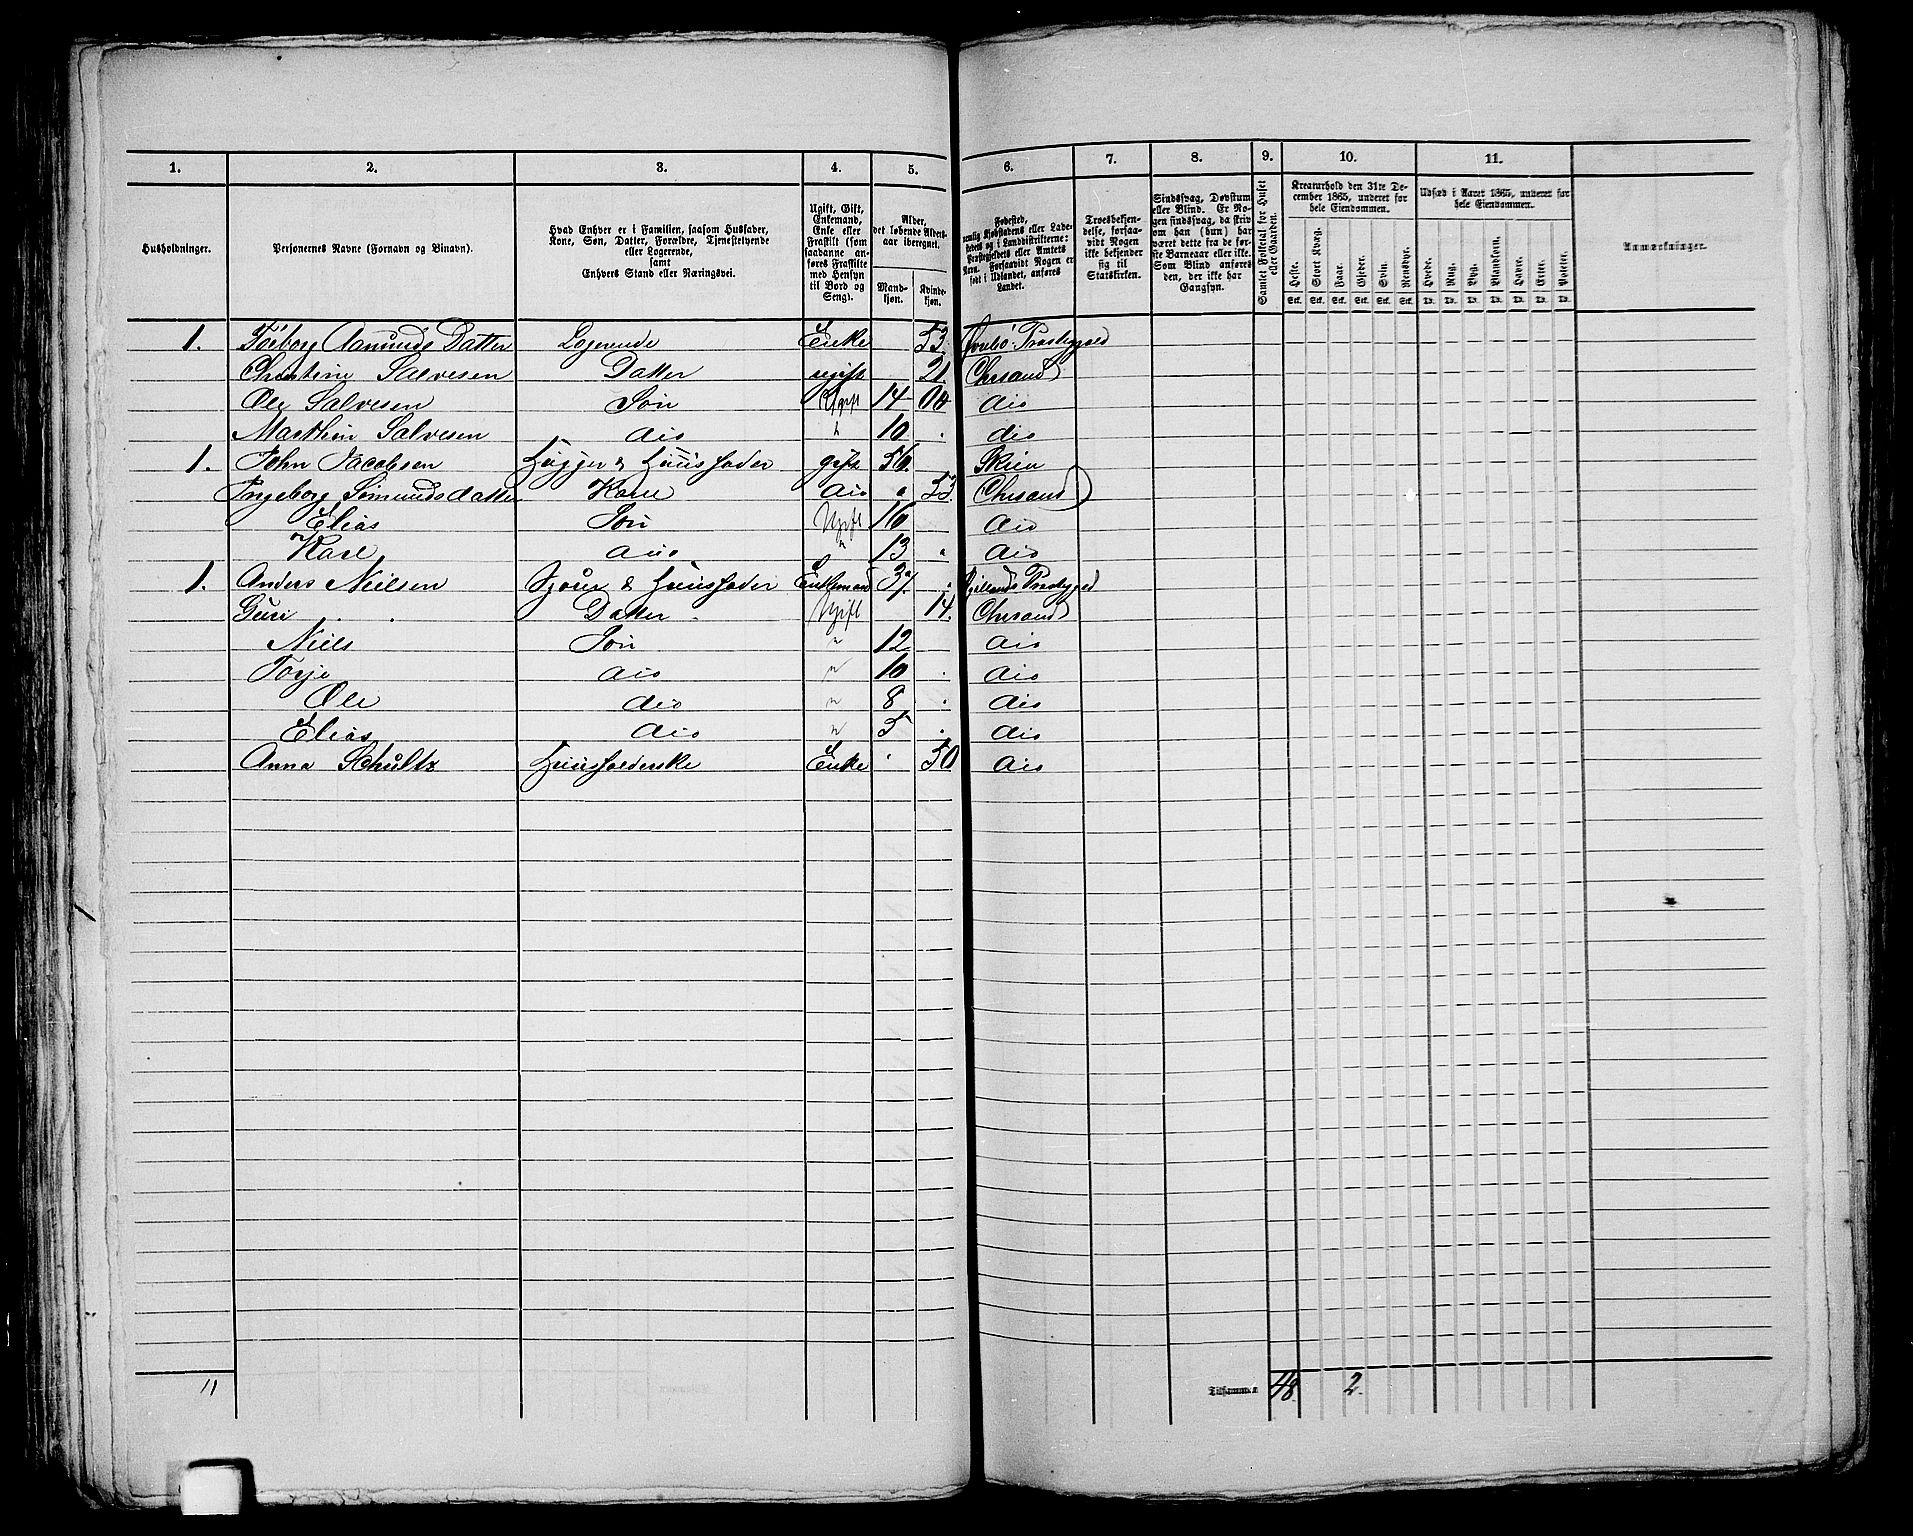 1. 2. 3. 4. 5. 6. 7. 8. 9. 10. 11.
Husholdninger.
Personernes Navne (Fornavn og Binavn).
Hvad Enhver er i Familien, saasom Husfader,
Kone, Søn, Datter, Forældre, Tjenestetyende
eller Logerende,
samt
Enhvers Stand eller Næringsvei.
Ugift, Gift,
Enkemand,
Enke eller
Fraskilt (som
saadanne an-
føres Fraskilte
med Hensyn
til Bord og
Seng).
Alder,
det løbende Alders-
aar iberegnet.
Mand-
kjøn.
Kvinde-
kjøn.
Fødested,
nemlig Kjøbstadens eller Lade-
stedets og i Landdistrikterne:
Præstegjeldets eller Amtets
Navn. Forsaavidt Nogen er
født i Udlandet, anføres
Landet.
Troesbekjen-
delse, forsaa-
vidt Nogen
ikke bekjender
sig til
Statskirken.
Sindssvag, Døvstum
eller Blind. Er No-
gen sindssvag, da skriv
om han (hun) har
været dette fra de før-
ste Barneaar eller ikke.
Som Blind anføres
den, der ikke har
Gangsyn.
Samlet Folketal for Huset
eller Gaarden.
Kreaturhold den 31te De-
cember 1865, underet for
hele Eiendommen.
Heste. Stort Kvæg. Faar. Gjeder. Svin. Rensdyr.
Stk. Stk. Stk. Stk. Stk. Stk.
Udsæd i Aaret 1865, underet for
hele Eiendommen.
Hvede. Rug. Byg. Blandkorn. Havre. Erter. Poteter.
Anmærkninger.
1. Aamunds Datter Logerende Enke 53.
Christine Salvesen Datter ugift 21. Chrsand
Ole Salvesen Søn Ugift 14 dio
Marthin Salvesen dio " 10 dio
1. John Jacobsen Huusfader gift 56. Skien
Ingeborg Sømundsdatter Kone dio " 53. Chrsand
Elias Søn Ugift 16 dio
" Karl dio " 13 dio
1. Anders Nielsen & Huusfader Enkemand 37.
Guri Datter Ugift 14. Chrsand
Niels Søn " 12 dio
Torje dio " 10 dio
Ole dio " 8 dio
Elias dio " 5 dio
Anna Schultz Huusholderske Enke 50 dio
11 Tilsammen 48 2.